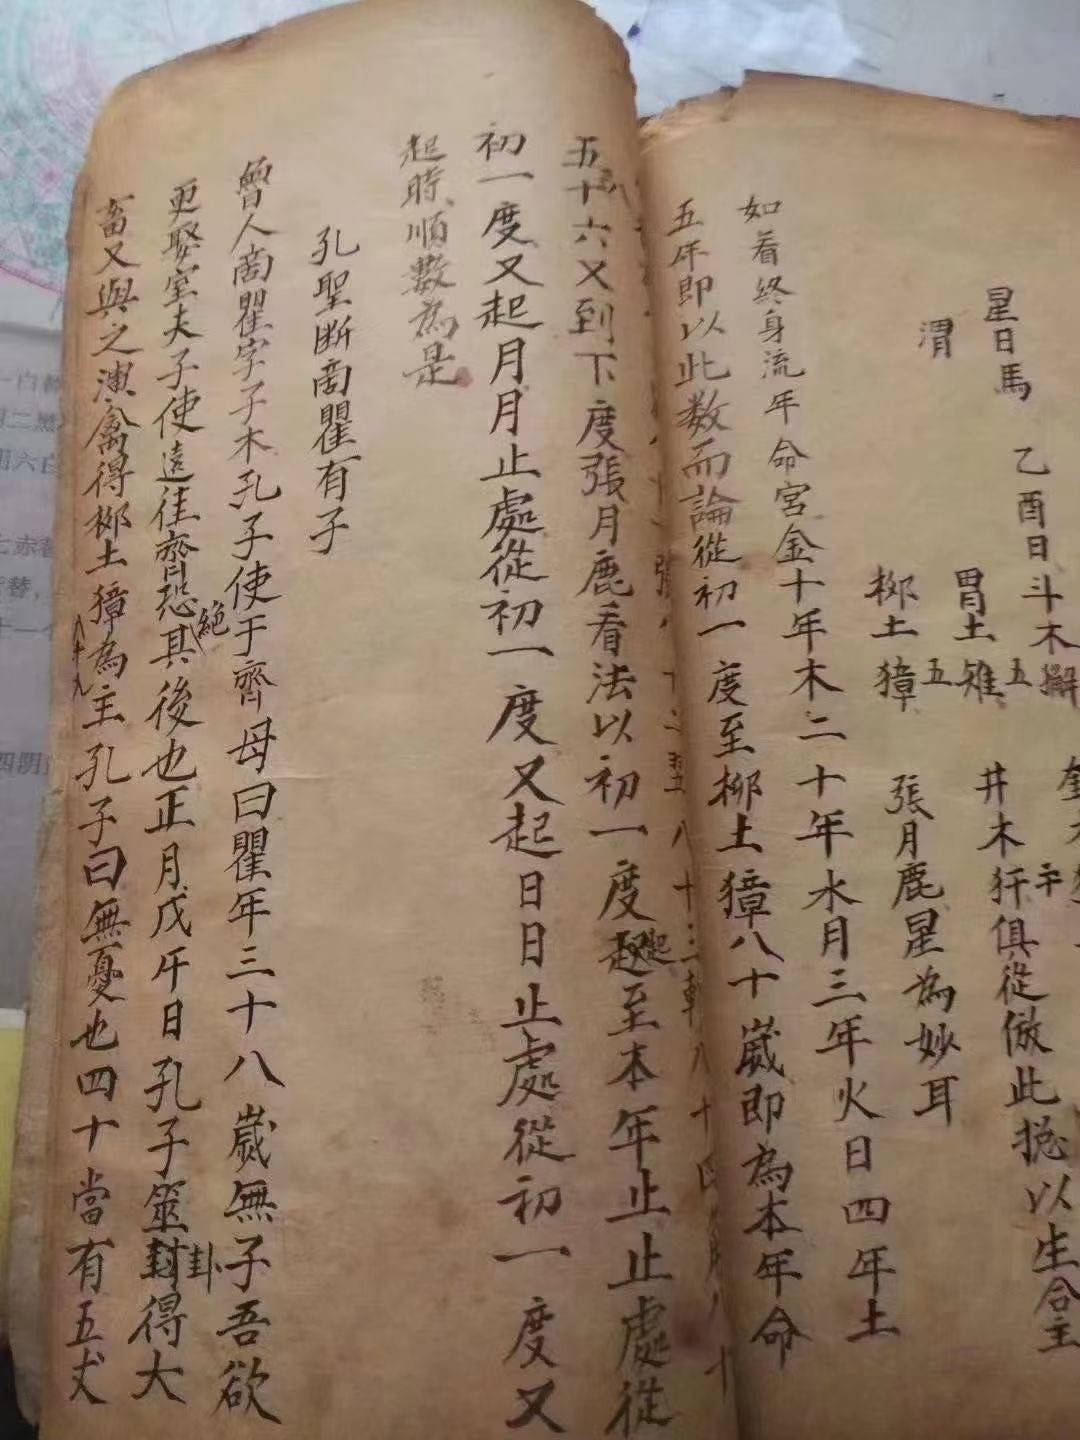 星日馬　乙酉日斗木獬
渭　胃土雉五　井木犴平俱從倣此揔以生合主
柳土獐五　張月鹿星為妙耳
如看終身流年命宮金十年木二十年水月三年火日四年土
五年即以此数而論從初一度至柳土獐八十歲即為本年命
五十六又到下度張月鹿看法以初一度起至本年止止處從
初一度又起月月止處從初一度又起日日止處從初一度又
起時順數為是
孔聖断啇瞿有子
曾人啇瞿字子木孔子使于齊母曰瞿年三十八歲無子吾欲
更娶室夫子使遠往齊恐其絕後也正月戊午日孔子筮封卦得大
畜又與之演禽得柳土獐為主孔子曰無憂也四十當有五丈
八十九
一白
二黑
六白
七赤
四阴